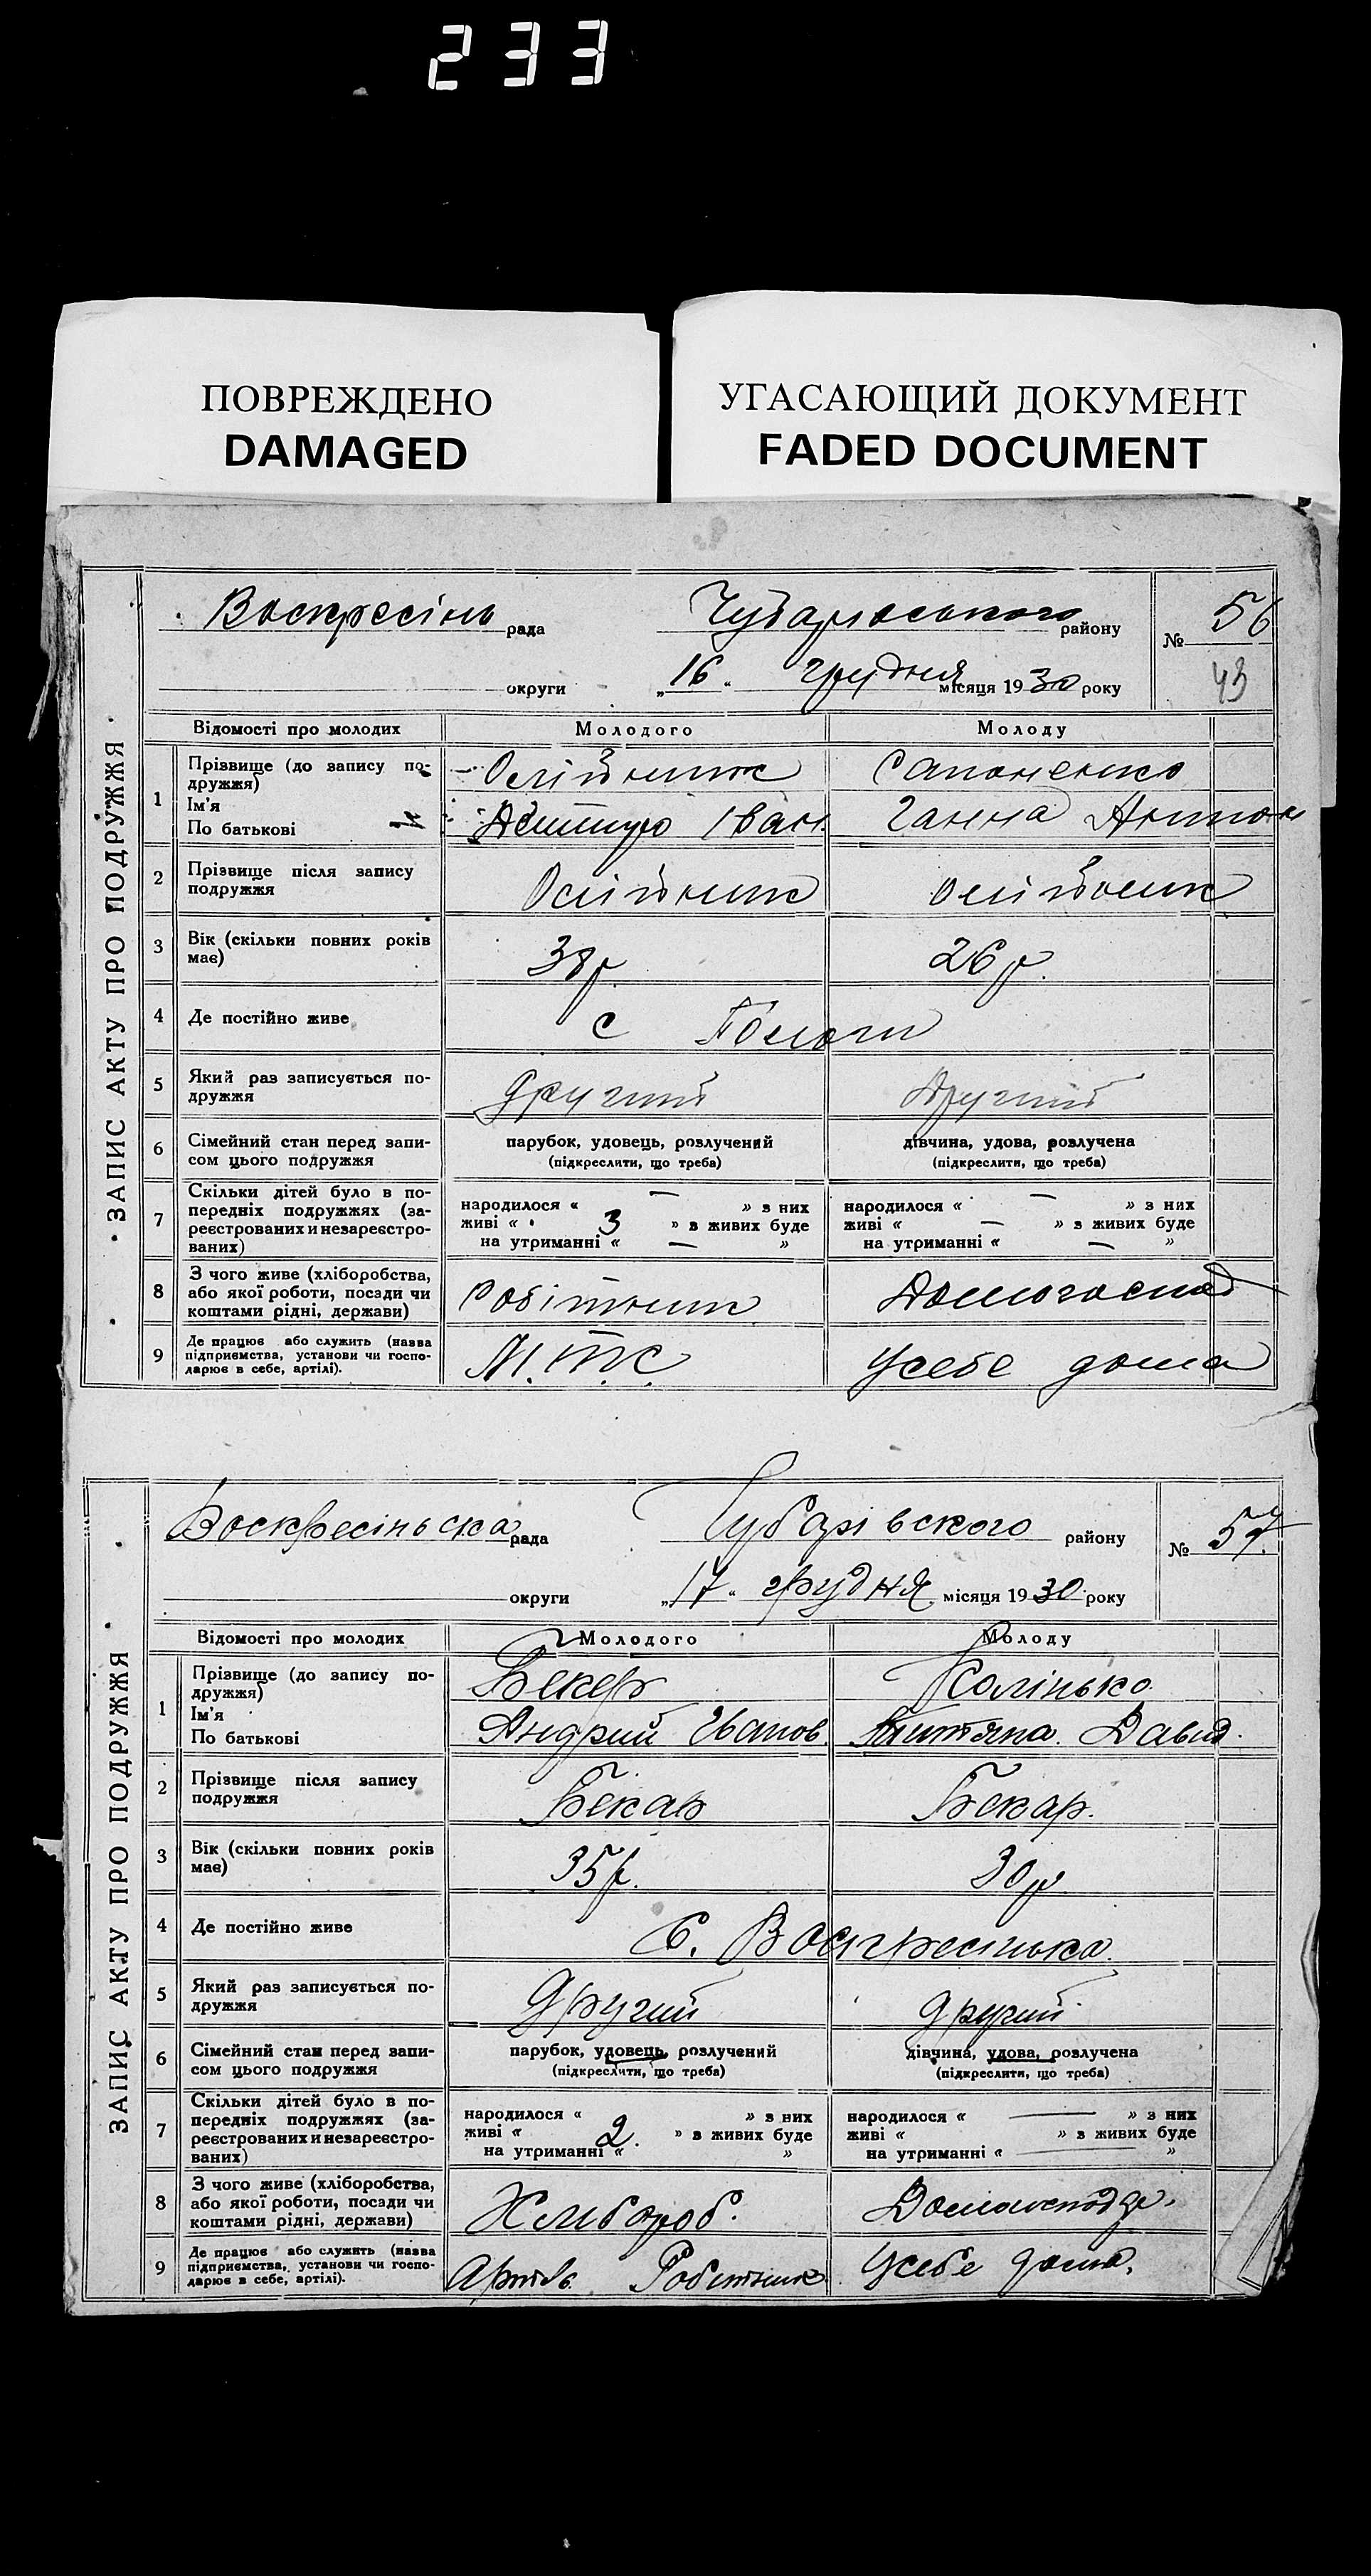 233
ПОВРЕЖДЕНО
DAMAGED
УГАСАЮЩИЙ ДОКУМЕНТ
FADED DOCUMENT
ЗАПИС АКТУ ПРО ПОДРУЖЖЯ
Воскресінь рада Чубарського району № 56
округи „16“ грудня місяця 1930 року 43
Відомості про молодих Молодого Молоду
1 Прізвище (до запису по-
дружжя) Олійник Сапоненко
Ім'я
По батькові Іван Ганна Антон
2 Прізвище після запису
подружжя Олійник Олійник
3 Вік (скільки повних років
має) 38 р. 26 р.
4 Де постійно живе с Пологи
5 Який раз записується по-
дружжя другий другий
6 Сімейний стан перед запи-
сом цього подружжя
парубок, удовець, розлучений
(підкреслити, що треба)
дівчина, удова, розлучена
(підкреслити, що треба)
7 Скільки дітей було в по-
передніх подружжях (за-
реєстрованих и незареєстро-
ваних)
народилося « — » з них
живі « 3 » з живих буде
на утриманні « — »
народилося « — » з них
живі « — » з живих буде
на утриманні « — »
8 З чого живе (хліборобства,
або якої роботи, посади чи
коштами рідні, держави) робітник Домогоспод
9 Де працює або служить (назва
підприємства, установи чи госпо-
дарює в себе, артілі). М.Т.С. усебе дома
ЗАПИС АКТУ ПРО ПОДРУЖЖЯ
Воскресінська рада Чубарівского району № 57
округи „17“ грудня місяця 1930 року
Відомості про молодих Молодого Молоду
1 Прізвище (до запису по-
дружжя) Бекер Колінько
Ім'я
По батькові Андрий Иванов. Давид.
2 Прізвище після запису
подружжя Бекар Бекар.
3 Вік (скільки повних років
має) 35 р. 30 р
4 Де постійно живе С.
5 Який раз записується по-
дружжя другий другий
6 Сімейний стан перед запи-
сом цього подружжя
парубок, удовець, розлучений
(підкреслити, що треба)
дівчина, удова, розлучена
(підкреслити, що треба)
7 Скільки дітей було в по-
передніх подружжях (за-
реєстрованих и незареєстро-
ваних)
народилося « » з них
живі « 2. » з живих буде
на утриманні « »
народилося « — » з них
живі « » з живих буде
на утриманні « — »
8 З чого живе (хліборобства,
або якої роботи, посади чи
коштами рідні, держави) Хлибороб. Домогосподар.
9 Де працює або служить (назва
підприємства, установи чи госпо-
дарює в себе, артілі). Артель Робитник Усебе дома.